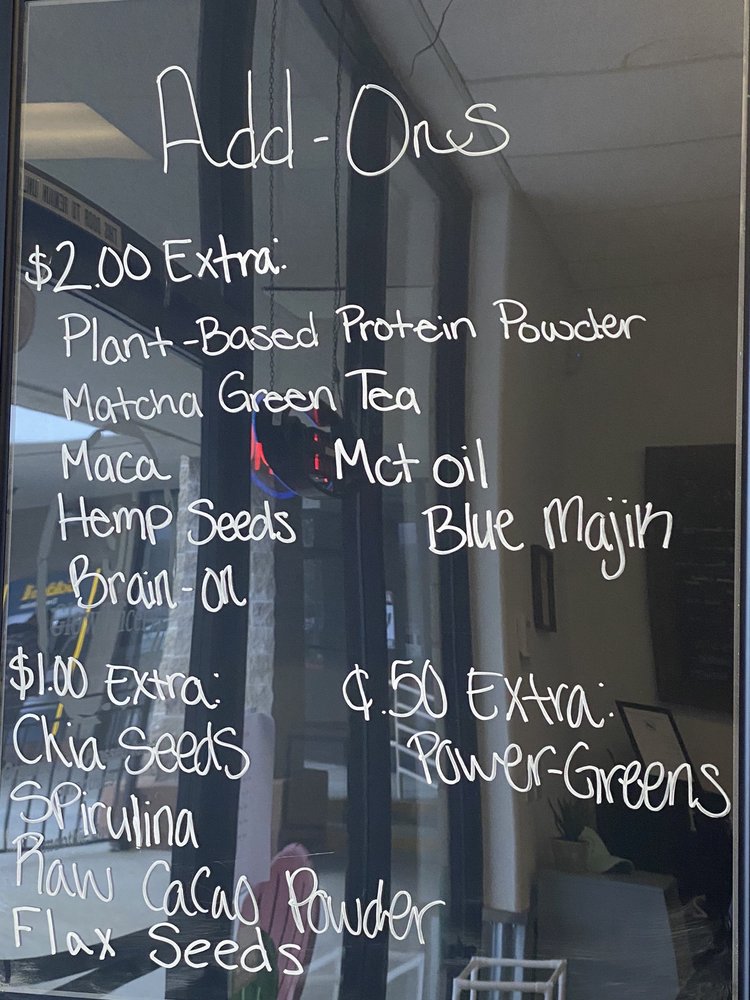 Add-Ons
$2.00 Extra:
Plant-Based Protein Powder
Matcha Green Tea
Maca
Mct oil
Hemp Seeds
Blue Majik
Brain-on
$1.00 Extra:
Chia Seeds
Spirulina
Raw Cacao Powder
Flax Seeds
¢.50 Extra:
Power-Greens